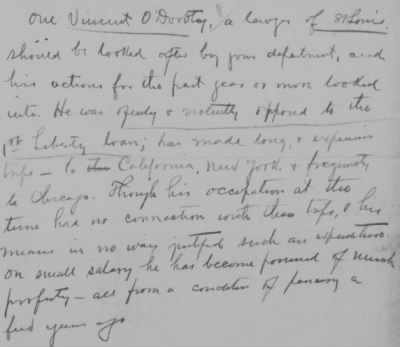 One Vincent O'Dorothy, a lawyer of St Louis
should be looked after by your department, and
his actions for the past year or more looked
into. He was openly & violently opposed to the
1st Liberty loan; has made long, & expensive
trips – to the California, New York & frequently
to Chicago. Though his occupation at the
time had no connection with these trips, & his
means in no way justified such an expenditure.
On small salary he has become possessed of much
property – all from a condition of penury a
few years ago.